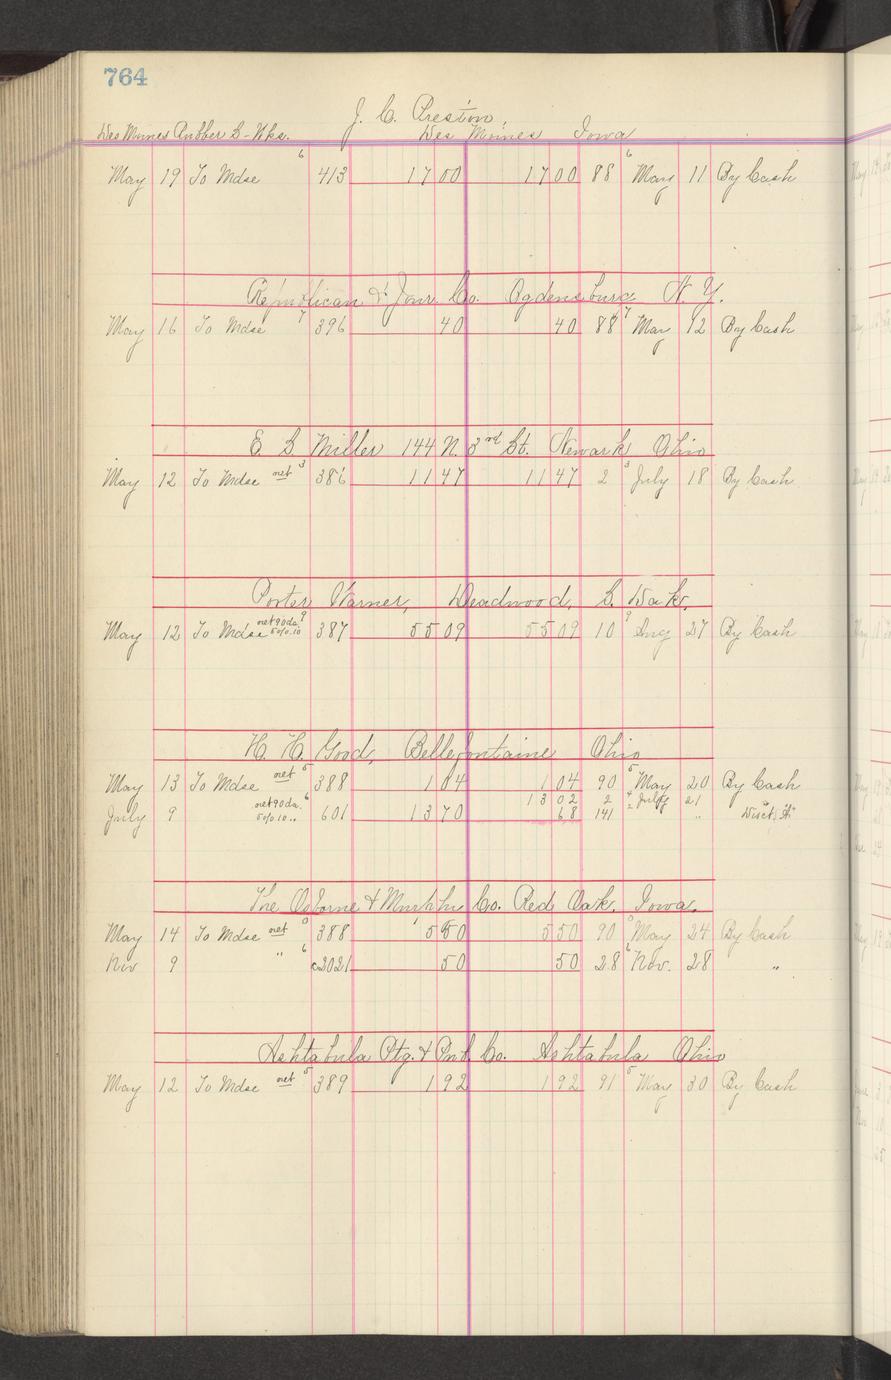 764
J. C. Preston,
Des Moines Rubber S- Wks. Des Moines Iowa
May 19 To Mdse 6 413 17 00 17 00 88 6 May 11 By Cash
Republican & Jour. Co. Ogdensburg N. Y.
May 16 To Mdse 7 396 40 40 88 7 May 12 By Cash
E. S. Miller 144 N. 3rd St. Newark, Ohio
May 12 To Mdse net 3 386 11 47 11 47 2 3 July 18 By Cash
Porter Warner, Deadwood, S. Dak.
May 12 To Mdse net 90 da. 5 0/0 10 9 387 55 09 55 09 10 9 Aug 27 By Cash
H. H. Good, Bellefontaine Ohio
May 13 To Mdse net 5 388 1 04 1 04 90 5 May 20 By Cash
July 9 net 90 da. 5 0/0 10 " 6 601 13 70 13 02 2 July 21 "
68 141 " Disct.
The Osborne & Murphy Co. Red Oak, Iowa.
May 14 To Mdse net 388 5 50 5 50 90 May 24 By Cash
Nov 9 " 6 c2021 50 50 28 6 Nov. 28 "
Ashtabula Ptg. & Pub. Co. Ashtabula Ohio
May 12 To Mdse net 5 389 1 92 1 92 91 5 May 30 By Cash